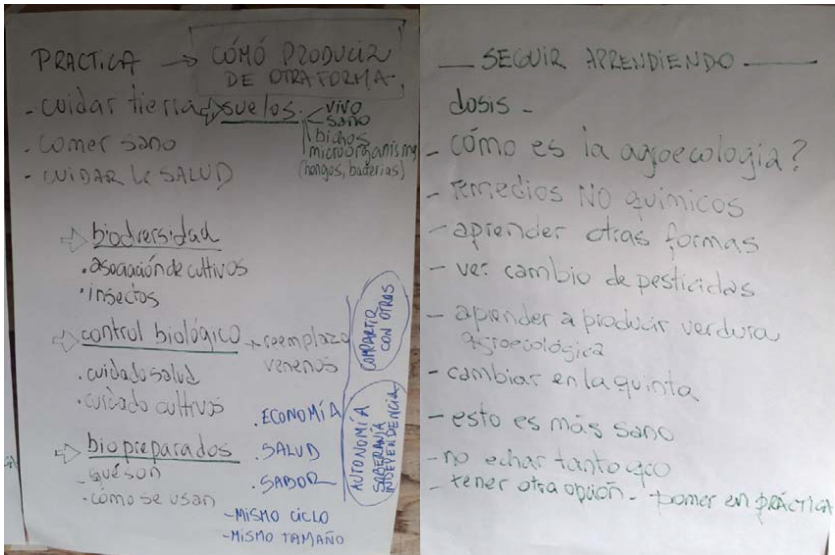 PRACTICA → CÓMO PRODUCIR
DE OTRA FORMA
- cuidar tierra ⇒ suelos.
vivo
sano
bichos
microorganismo
(hongos, bacterias)
. comer sano
- CUIDAR la SALUD
⇒ biodiversidad
. asociación de cultivos
. insectos
⇒ control biológico → reemplazo
venenos
. cuidado salud
. cuidado cultivos
⇒ biopreparados
- qué son
. cómo se usan
. ECONOMÍA
. SALUD
. SABOR
- MISMO CICLO
- MISMO TAMAÑO
COMPARTIR
CON OTRAS
AUTONOMÍA
SOBERANÍA
INDEPENDENCIA
— SEGUIR APRENDIENDO —
dosis -
- cómo es la agroecología?
- remedios NO químicos
- aprender otras formas
- ver cambio de pesticidas
- aprender a producir verdura
agroecológica
- cambiar en la quinta
- esto es más sano
- no echar tanto
- tener otra opción - poner en PRÁCTICA